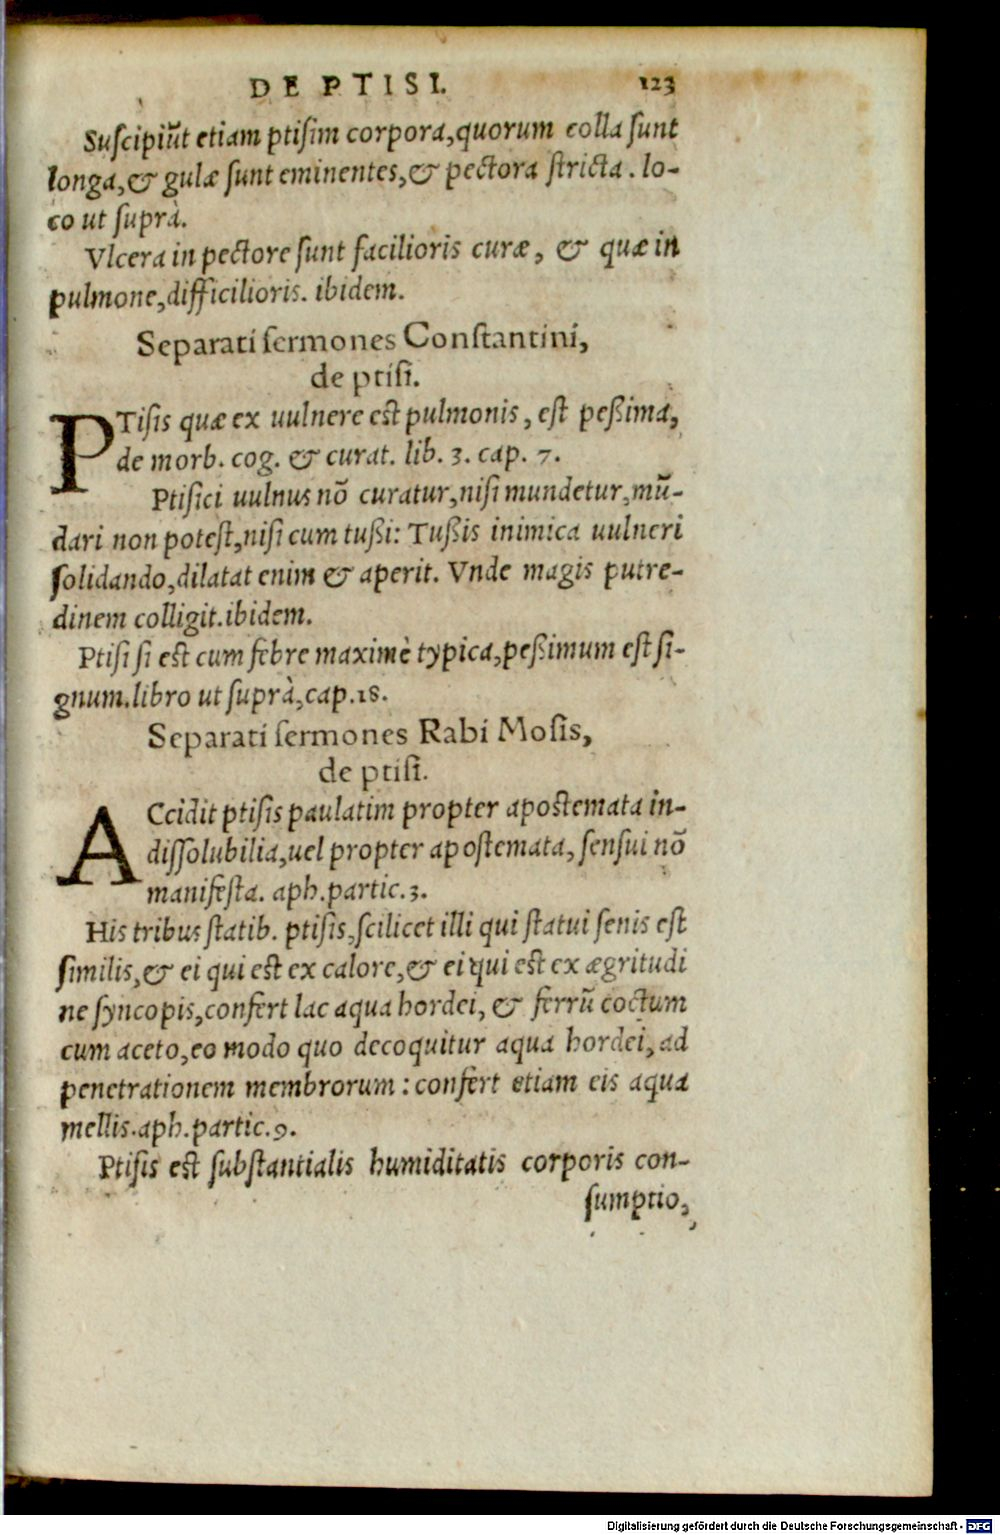 DE PTISI. 123
Suſcipiūt etiam ptiſim corpora,quorum colla ſunt
longa,& gulæ ſunt eminentes,& pectora ſtricta. lo-
co ut ſuprà.
Vlcera in pectore ſunt facilioris curæ, & quæ in
pulmone,difficilioris. ibidem.
Separati ſermones Conſtantini,
de ptiſi.
PTiſis quæ ex uulnere eſt pulmonis, eſt peßima,
de morb. cog. & curat. lib. 3. cap. 7.
Ptiſici uulnus nō curatur,niſi mundetur,mū-
dari non poteſt,niſi cum tußi: Tußis inimica uulneri
ſolidando,dilatat enim & aperit. Vnde magis putre-
dinem colligit.ibidem.
Ptiſi ſi eſt cum febre maximè typica,peßimum eſt ſi-
gnum.libro ut ſuprà,cap.18.
Separati ſermones Rabi Moſis,
de ptiſi.
ACcidit ptiſis paulatim propter apoſtemata in-
diſſolubilia,uel propter apoſtemata, ſenſui nō
manifeſta. aph.partic.3.
His tribus ſtatib. ptiſis,ſcilicet illi qui ſtatui ſenis eſt
ſimilis,& ei qui eſt ex calore,& ei qui eſt ex ægritudi
ne ſyncopis,confert lac aqua hordei, & ferrū coctum
cum aceto,eo modo quo decoquitur aqua hordei, ad
penetrationem membrorum: confert etiam eis aqua
mellis.aph.partic.9.
Ptiſis eſt ſubſtantialis humiditatis corporis con-
ſumptio,
Digitalisierung gefördert durch die Deutsche Forschungsgemeinschaft - DFG